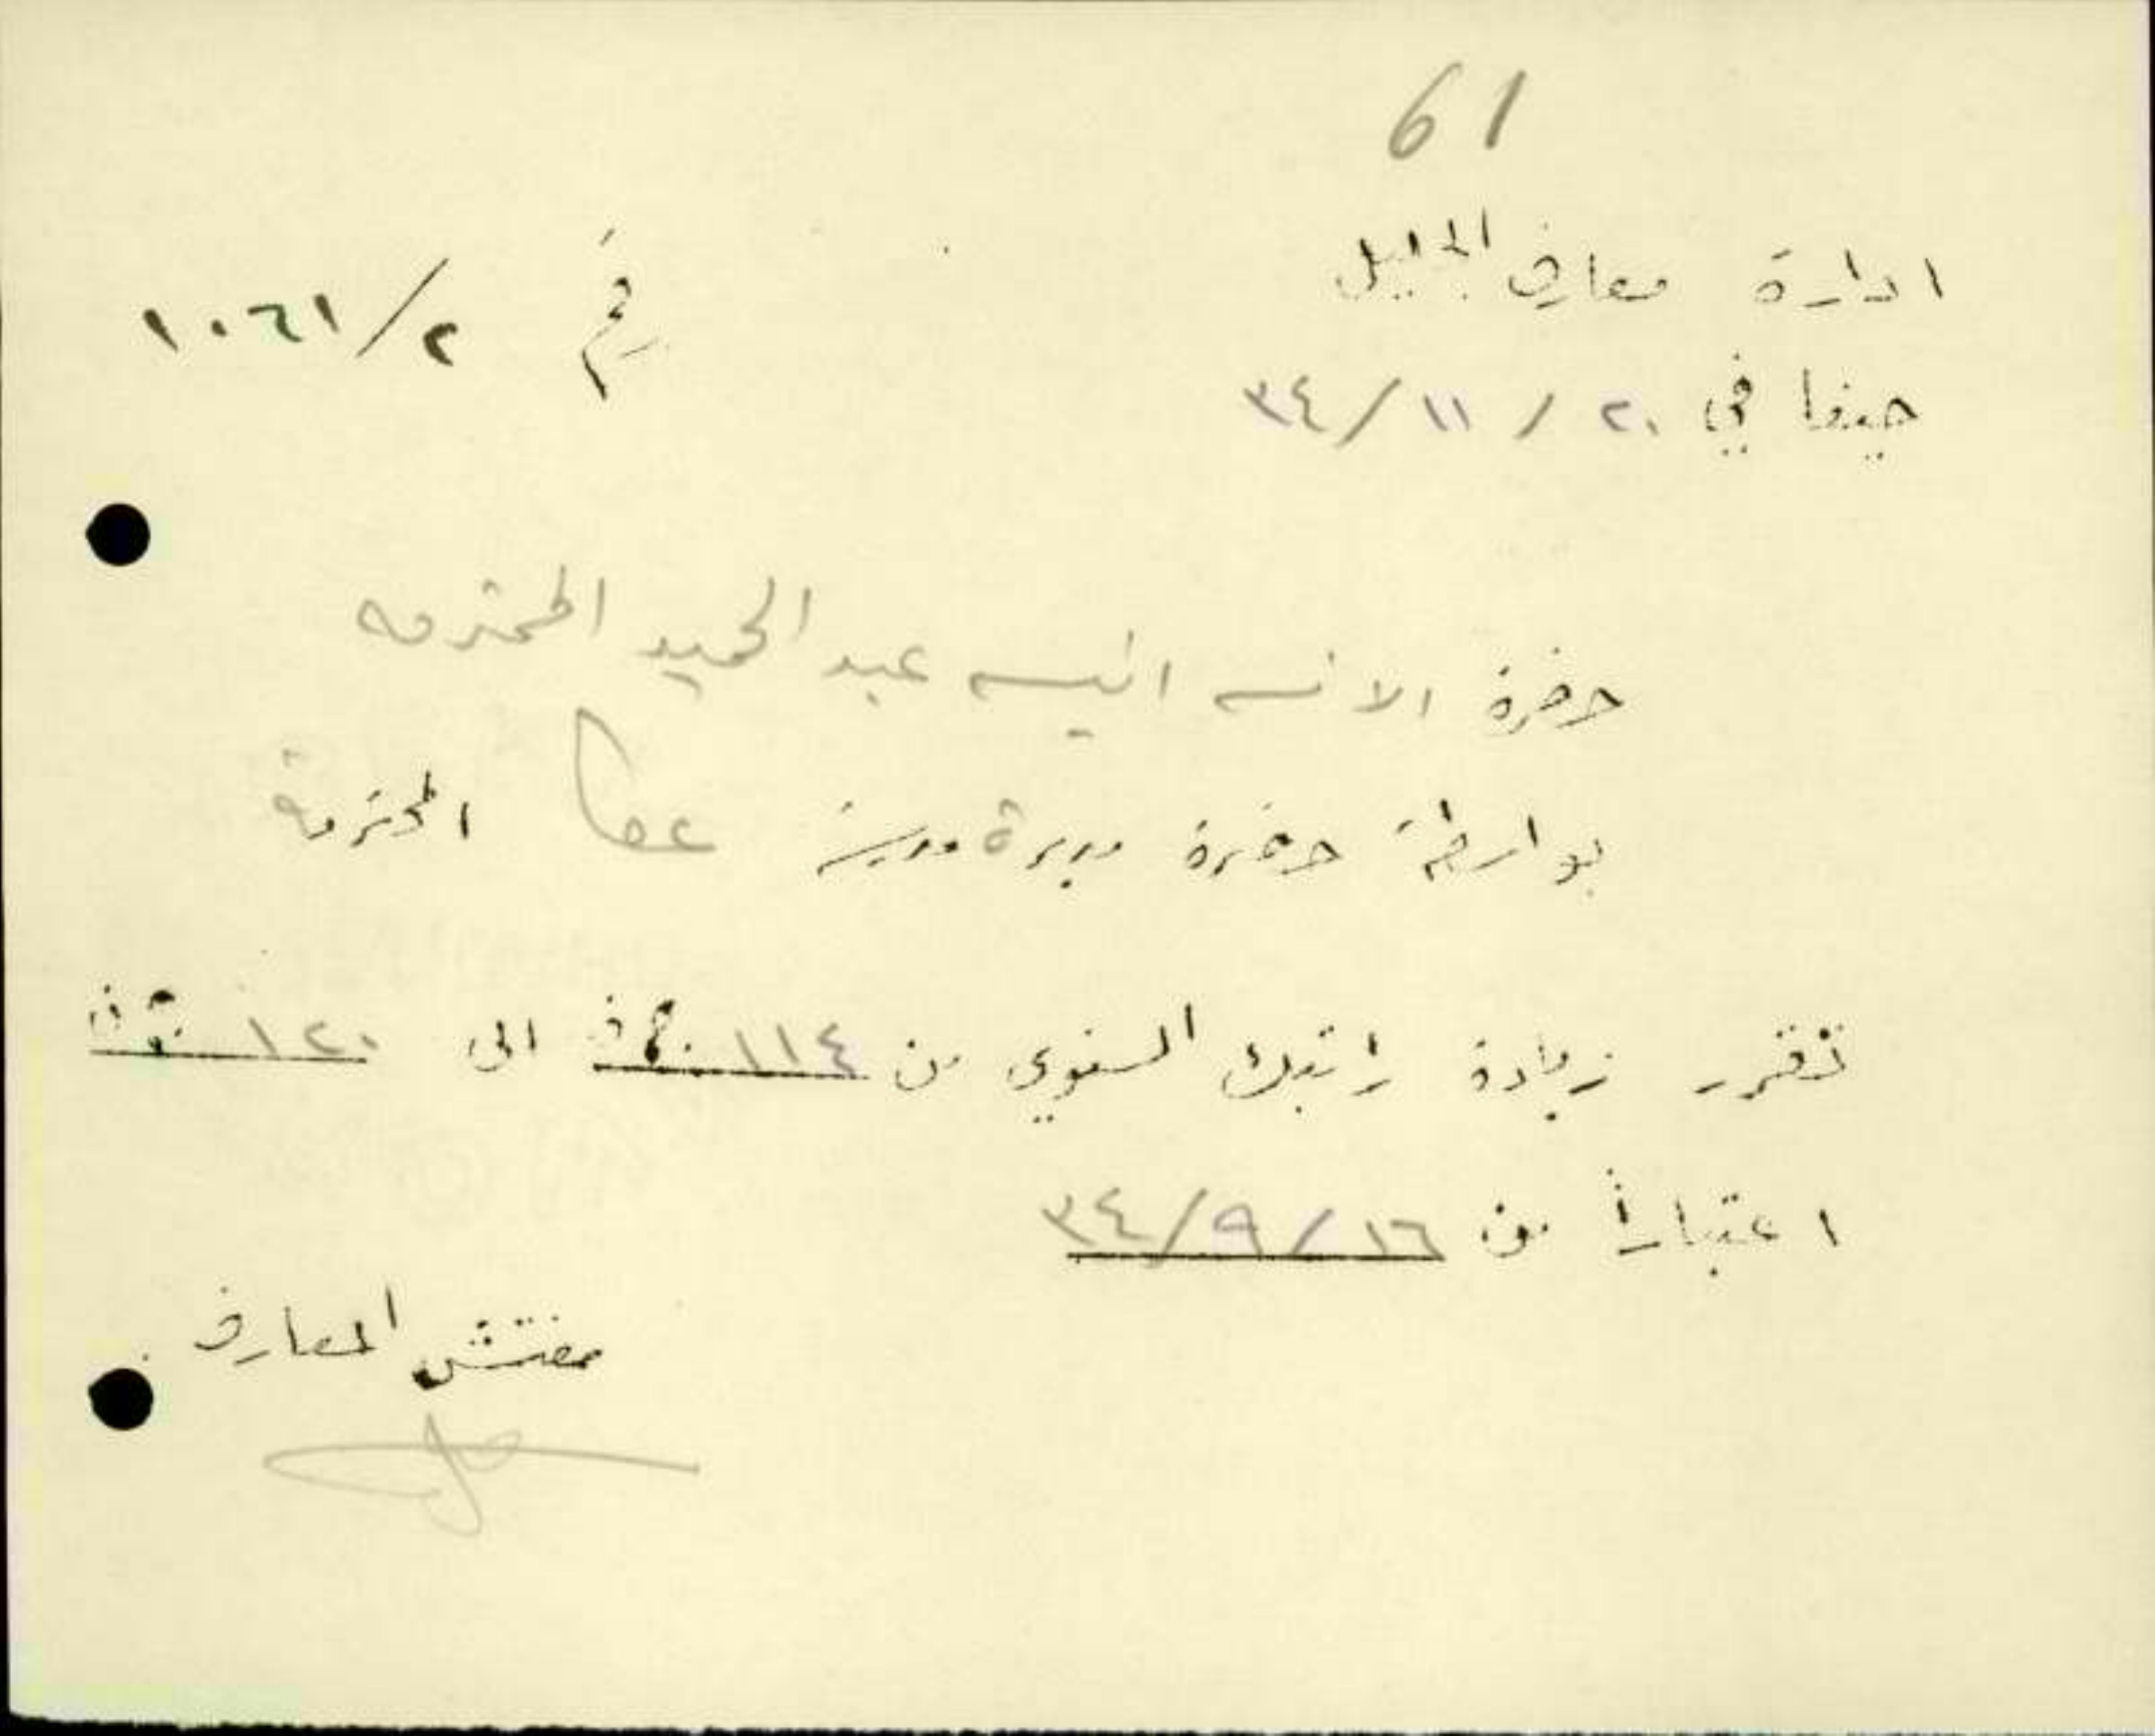 61
ادارة معارف الجليل
رقم ١٠٦١/٢
حيفا في ٢٠ / ١١ / ٣٤
حضرة الانسه انيسه عبد الحميد المحترمه
بواسطة حضرة مديرة مدرسة عكا المحترمة
تقرر زيادة راتبك السنوي من ١١٤ الى ١٢٠
اعتباراً من ١٦ / ٩ / ٣٤
مفتش المعارف